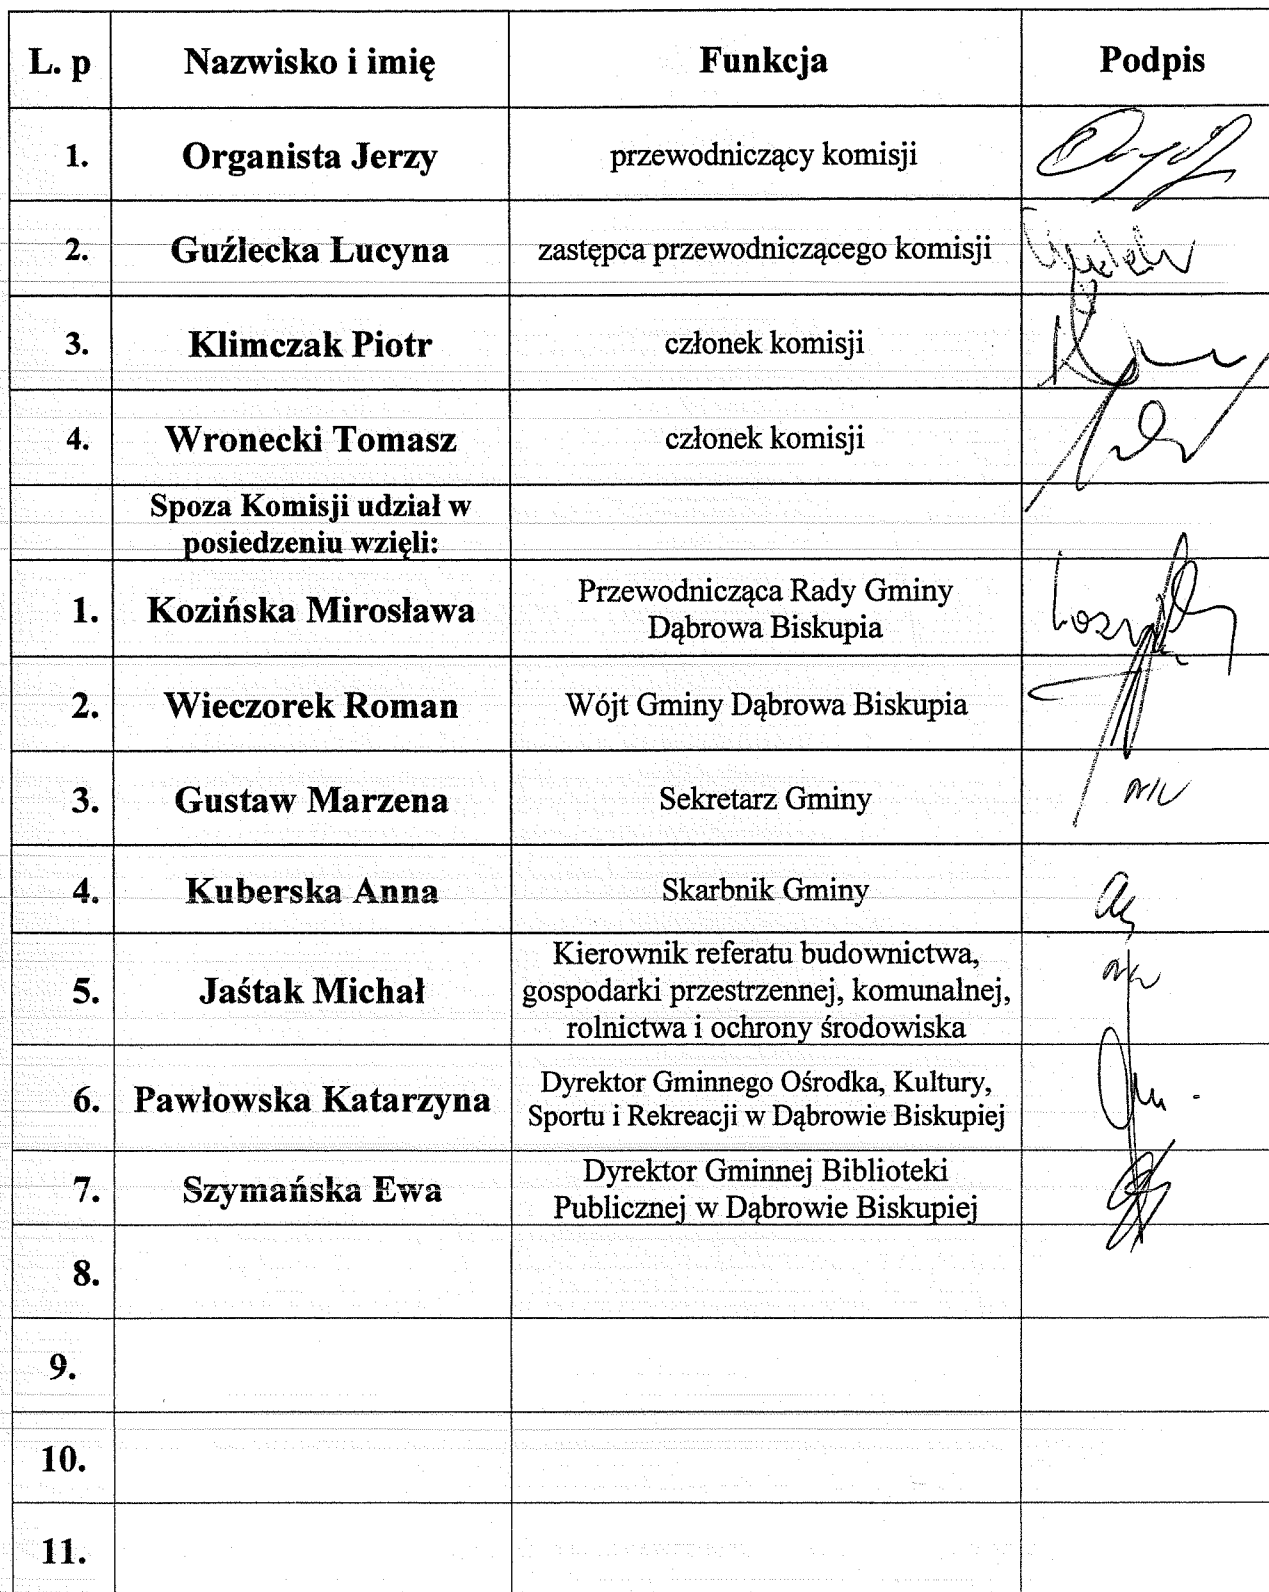 L. p Nazwisko i imię Funkcja Podpis
1. Organista Jerzy przewodniczący komisji
2. Guźlecka Lucyna zastępca przewodniczącego komisji
3. Klimczak Piotr członek komisji
4. Wronecki Tomasz członek komisji
Spoza Komisji udział w
posiedzeniu wzięli:
1. Kozińska Mirosława Przewodnicząca Rady Gminy
Dąbrowa Biskupia
2. Wieczorek Roman Wójt Gminy Dąbrowa Biskupia
3. Gustaw Marzena Sekretarz Gminy
4. Kuberska Anna Skarbnik Gminy
5. Jaśtak Michał Kierownik referatu budownictwa,
gospodarki przestrzennej, komunalnej,
rolnictwa i ochrony środowiska
6. Pawłowska Katarzyna Dyrektor Gminnego Ośrodka, Kultury,
Sportu i Rekreacji w Dąbrowie Biskupiej
7. Szymańska Ewa Dyrektor Gminnej Biblioteki
Publicznej w Dąbrowie Biskupiej
8.
9.
10.
11.